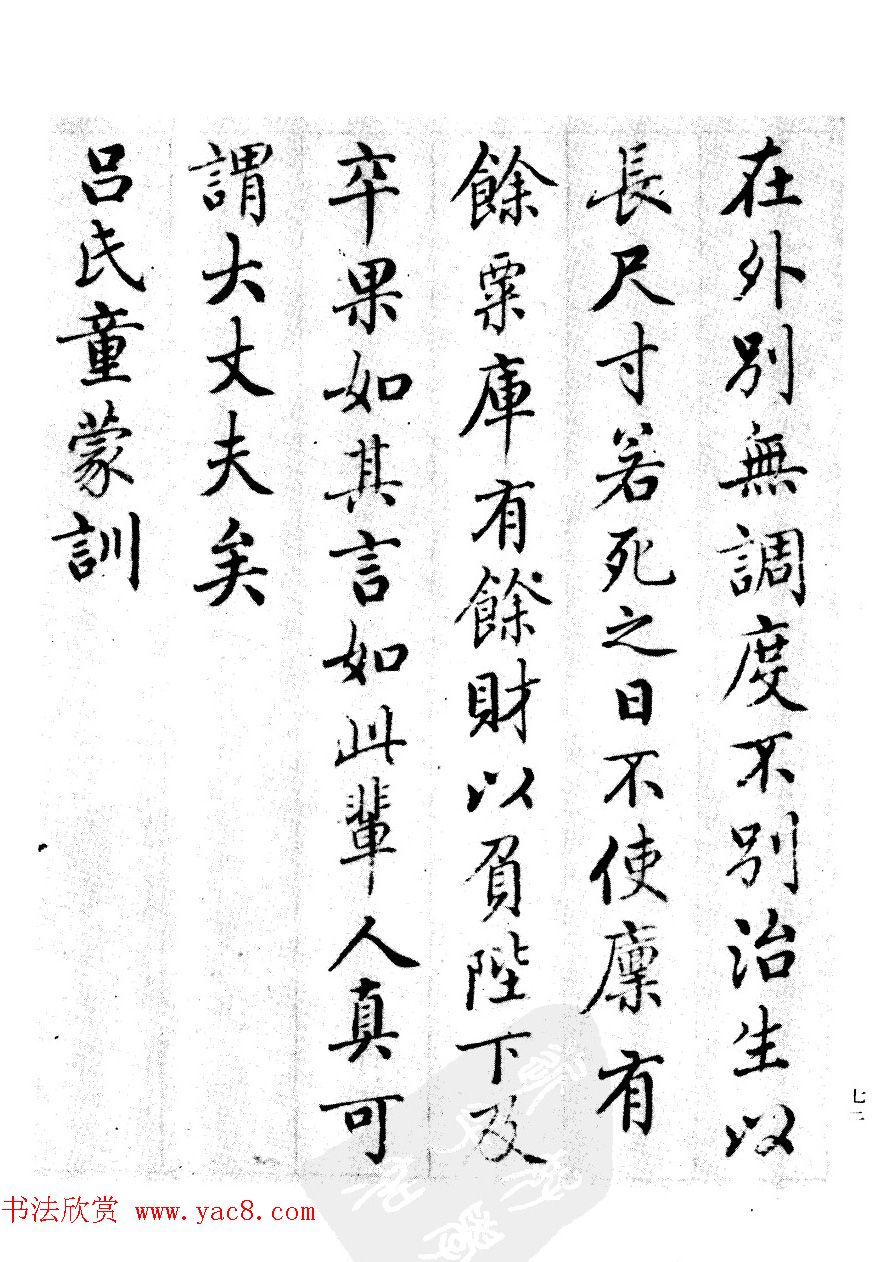 在外別無調度不別治生以
長尺寸若死之日不使廩有
餘粟庫有餘財以負陛下及
卒果如其言如此輩人真可
謂大丈夫矣
呂氏童蒙訓
七一
书法欣赏 www.yac8.com